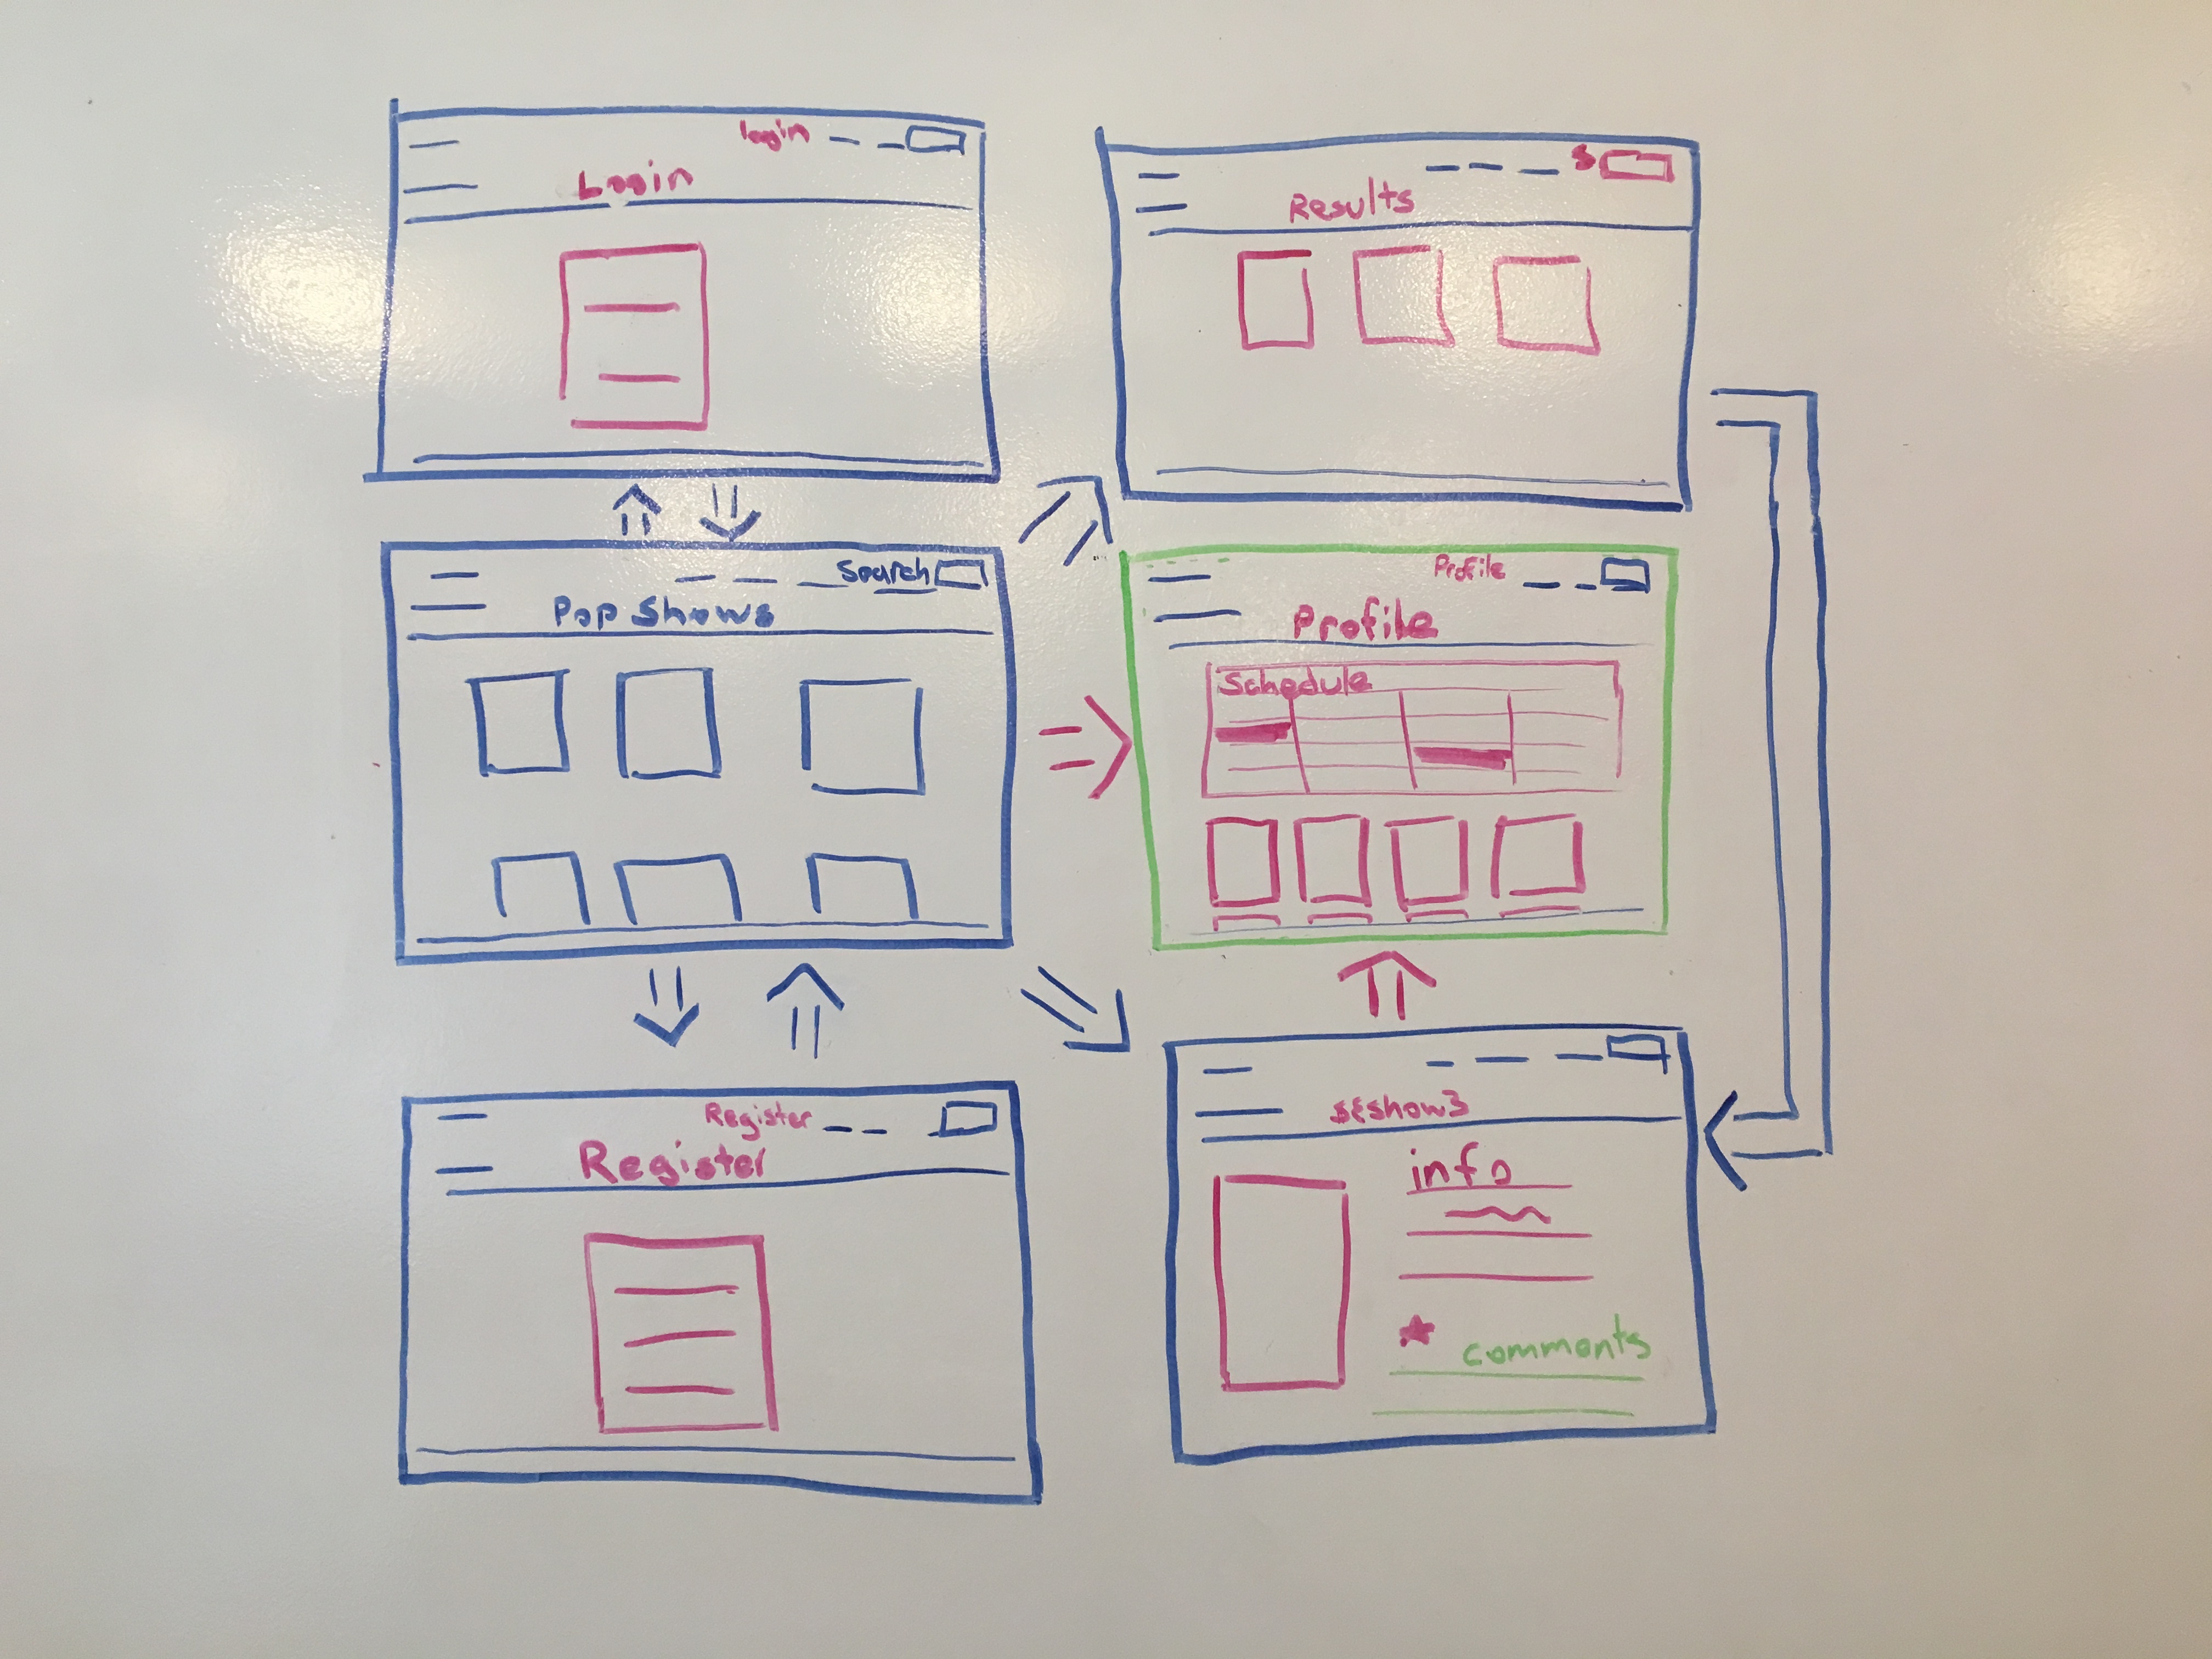 login
Login
S
Results
Search
Pop Shows
Profile
Profile
Schedule
Register
Register
info
comments